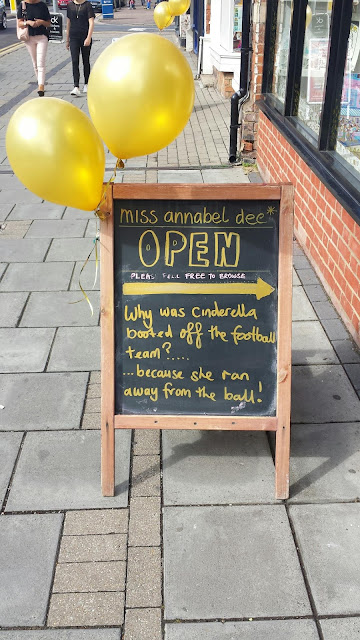 miss annabel dee*
OPEN
PLEASE FEEL FREE TO BROWSE
Why was cinderella
booted off the football
team?....
...because she ran
away from the ball!